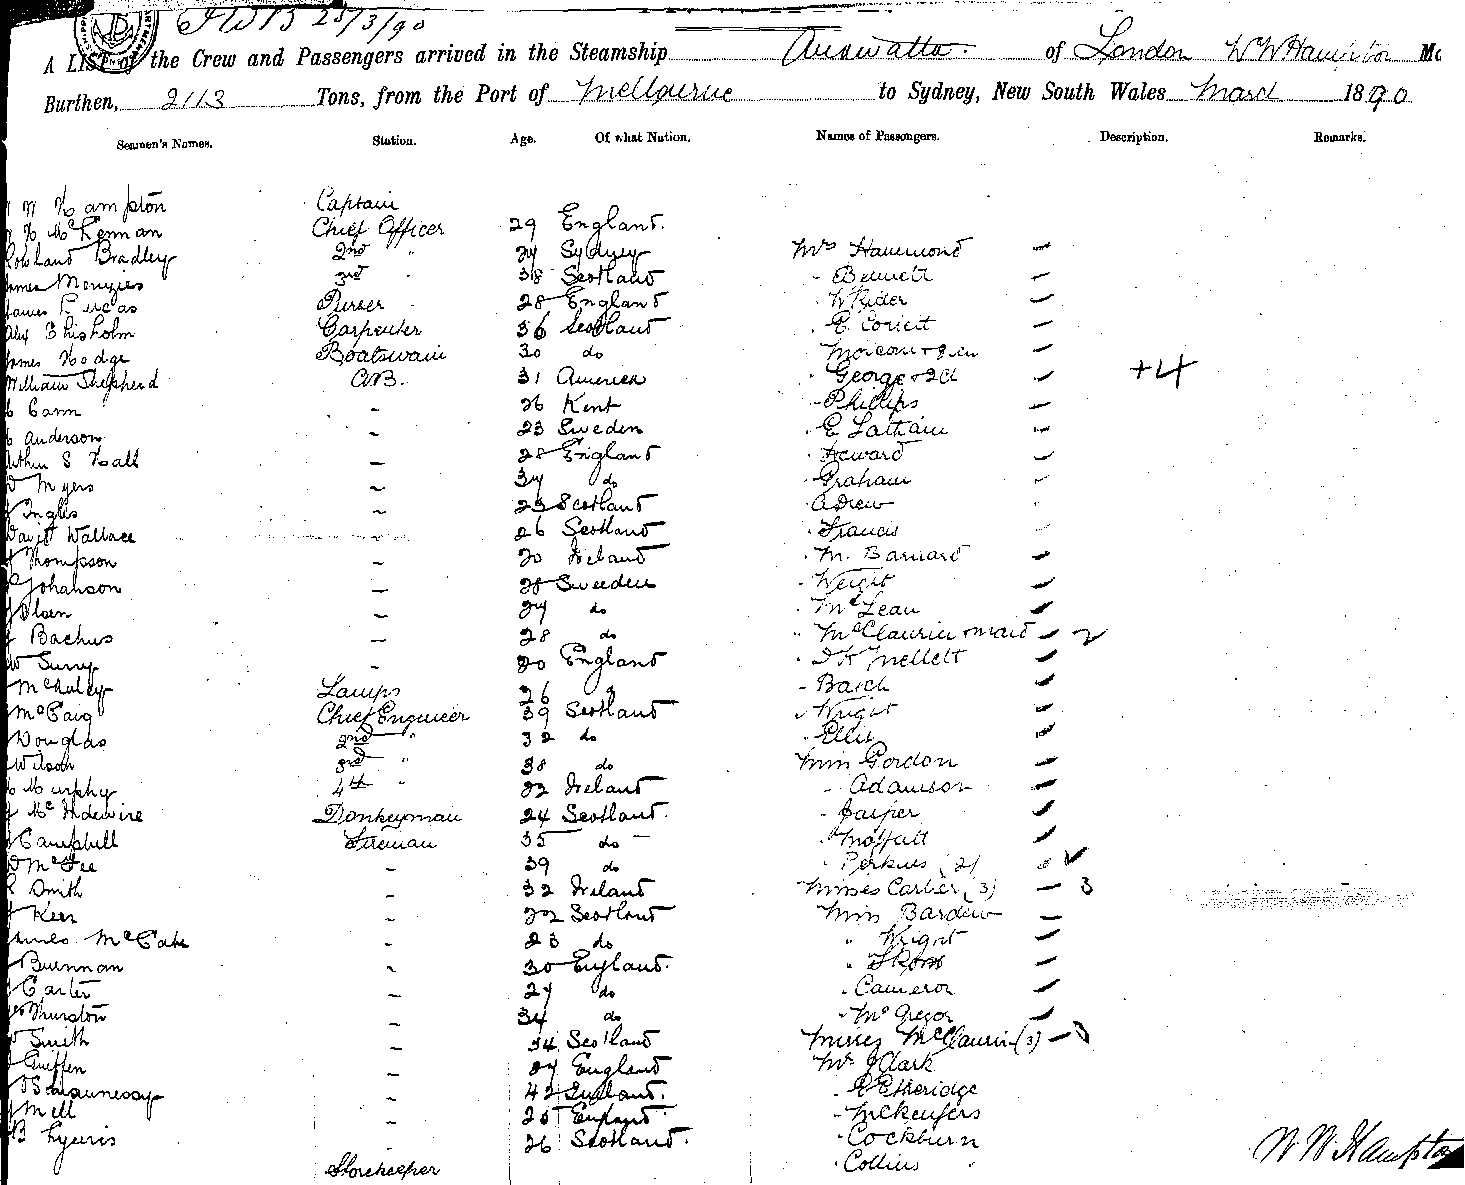 25/3/90
A LIST of the Crew and Passengers arrived in the Steamship of London W W Hampton
Burthen, 2113 Tons, from the Port of Melbourne to Sydney, New South Wales March 1890
Seamen's Names. Station. Age. Of what Nation. Names of Passengers. Description. Remarks.
Hampton Captain
McLennan Chief Officer 29 England.
Rowland Bradley 2nd " 24 Sydney Mrs Hammond
James Menzies 3rd " 38 Scotland " Bennett
James Lucas Purser 28 England " Rider
Alex Chisholm Carpenter 36 Scotland "
James Hodge Boatswain 30 do "
William Shepherd AB. 31 America " George + 2d +4
Cann " 26 Kent " Phillips
Anderson " 23 Sweden " E Latham
Arthur S Hall " 28 England " Heward
Myers " 34 do " Graham
Inglis " 23 Scotland " Adrew
David Wallace " 26 Scotland " Francis
Thompson " 20 Ireland " M. Barnard
Johanson " 28 Sweden " Weight
Olsen " 24 do " McLean
Bachus " 28 do " McClaurin + maid 2
" 20 England " Mellett
McAuley Lamps 26 "
McCaig Chief Engineer 39 Scotland " Wright
Douglas 2nd " 32 do " Ellis
Wilson 3rd " 38 do Miss Gordon
Murphy 4th " 32 Ireland " Adamson
Donkeyman 24 Scotland. " Harper
Campbell Fireman 35 do " Moffatt
McGee " 39 do " Perkins (2)
Smith " 32 Ireland Misses Carter (3) 3
Keen " 22 Scotland Miss Barden
James McCabe " 23 do " Wright
Brennan " 30 England. "
Carter " 24 do " Cameron
Thurston " 34 do " McGregor
Smith " 34 Scotland Misses McClaurin (3) 3
Griffen " 34 England Mr J Clark
" 42 " Etheridge
Mell " 25 England "
" 26 Scotland. " Cockburn
Storekeeper " Collins
W. W. Hampton